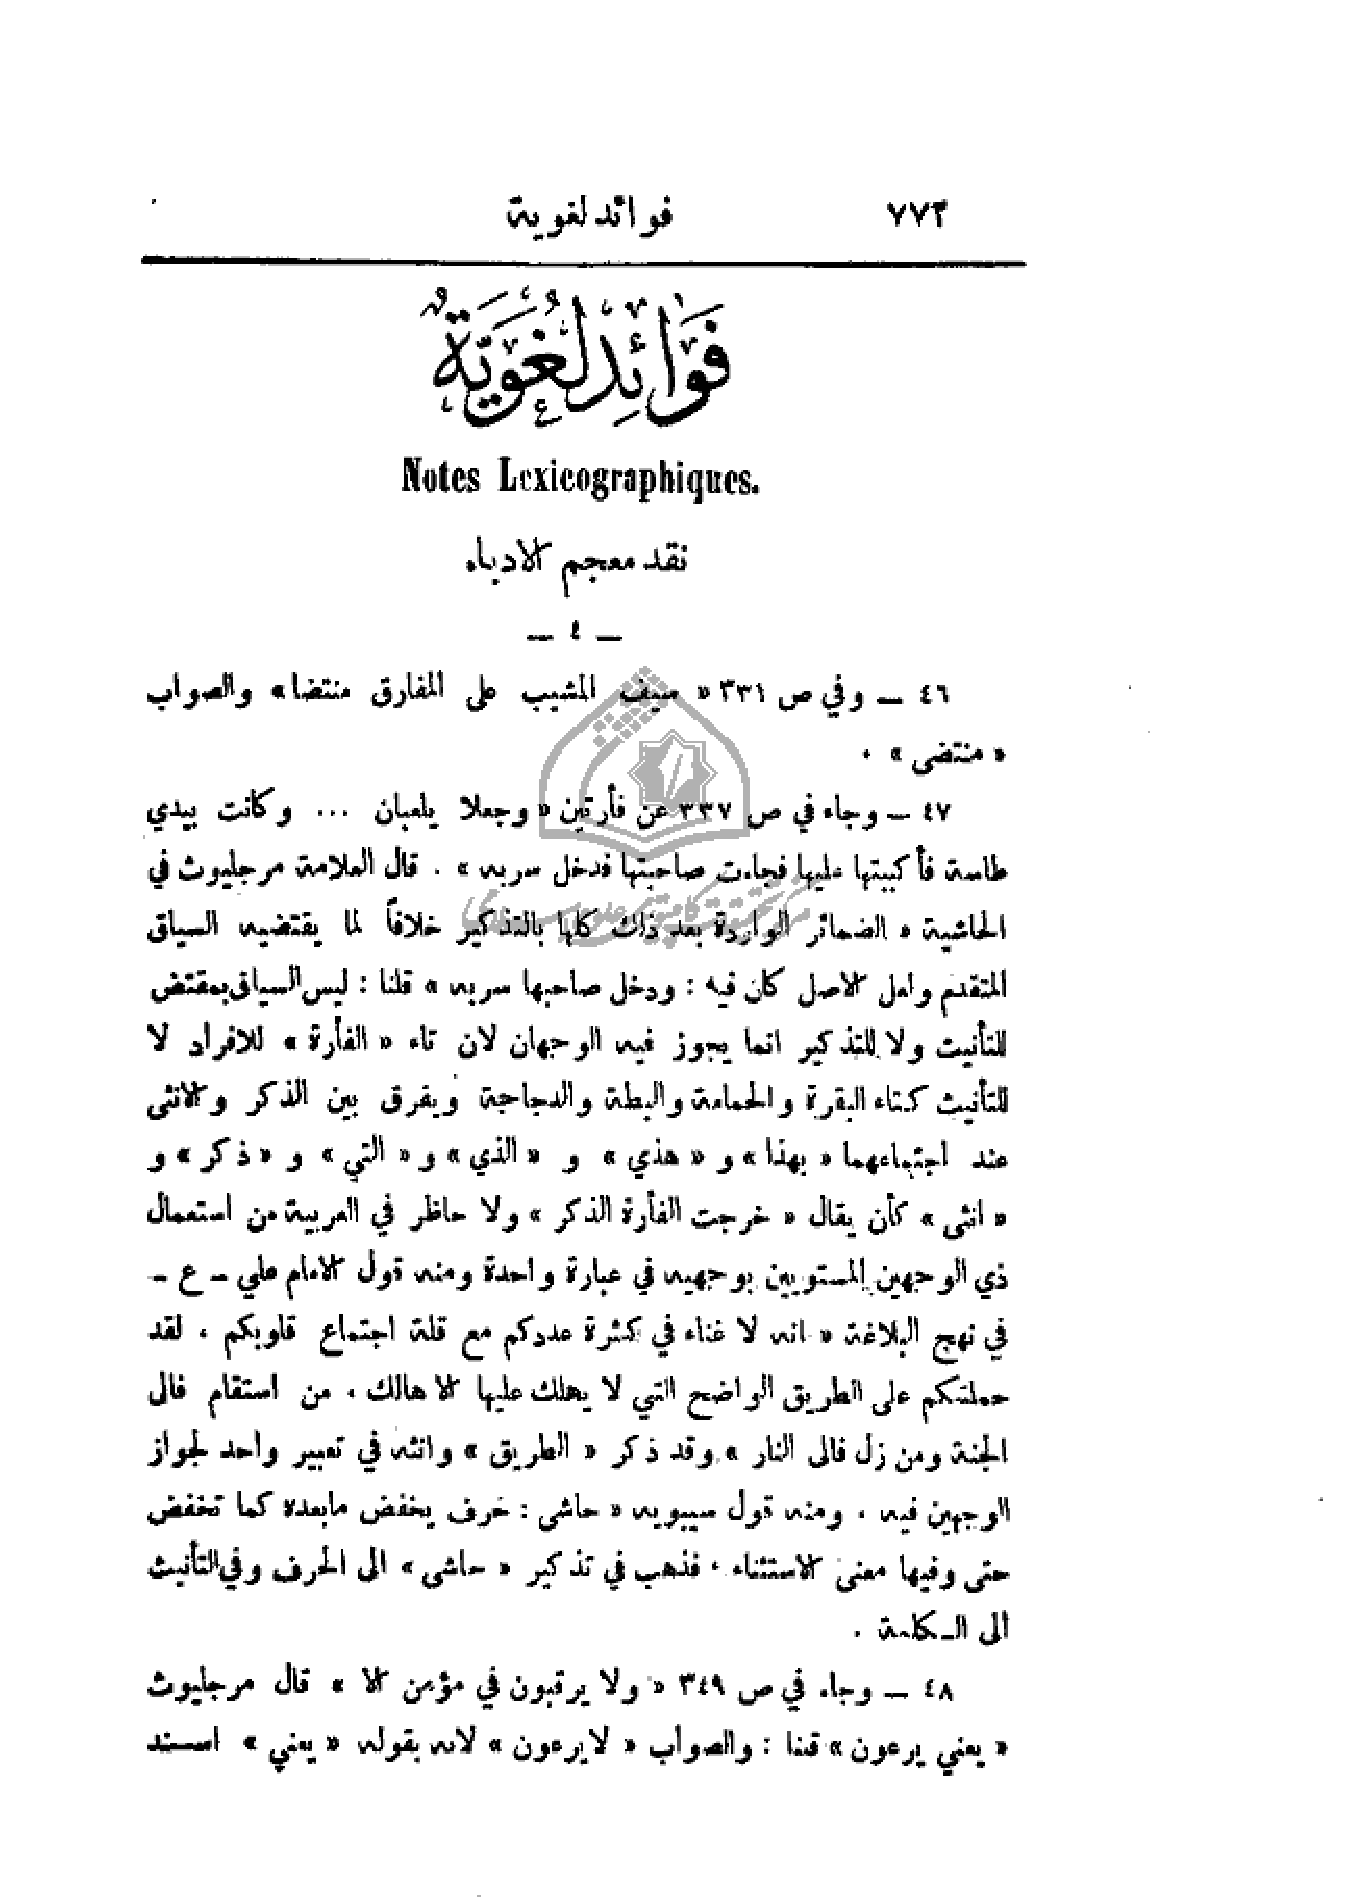 ٧٧٢ فوائد لغوية
فَوَائِد لُغَوِيَّةٌ
Notes Lexicographiques.
نقد معجم الادباء
— ٤ —
٤٦ — وفي ص ٣٣١ « سيف المشيب على المفارق منتضا» والصواب
« منتضى » .
٤٧ — وجاء في ص ٣٣٧ عن فأرتين « وجعلا يلعبان ... وكانت بيدي
طاسة فأكببتها عليها فجاءت صاحبتها فدخل سربه » . قال العلامة مرجليوث في
الحاشية « الضمائر الواردة بعد ذلك كلها بالتذكير خلافاً لما يقتضيه السياق
المتقدم ولعل الاصل كان فيه : ودخل صاحبها سربه » قلنا : ليس السياق بمقتض
للتأنيث ولا للتذكير انما يجوز فيه الوجهان لان تاء « الفأرة » للافراد لا
للتأنيث كتاء البقرة والحمامة والبطة والدجاجة ويفرق بين الذكر والانثى
عند اجتماعهما « بهذا » و « هذي » و « الذي » و « التي » و « ذكر » و
« انثى » كأن يقال « خرجت الفأرة الذكر » ولا حاظر في العربية من استعمال
ذي الوجهين المستويين بوجهيه في عبارة واحدة ومنه قول الامام علي ـ ع ـ
في نهج البلاغة « انه لا غناء في كثرة عددكم مع قلة اجتماع قلوبكم ، لقد
حملتكم على الطريق الواضح التي لا يهلك عليها الا هالك ، من استقام فالى
الجنة ومن زل فالى النار » وقد ذكر « الطريق » وانثه في تعبير واحد لجواز
الوجهين فيه ، ومنه قول سيبويه « حاشى : حرف يخفض مابعده كما تخفض
حتى وفيها معنى الاستثناء ، فذهب في تذكير « حاشى » الى الحرف وفي التأنيث
الى الكلمة .
٤٨ — وجاء في ص ٣٤٩ « ولا يرقبون في مؤمن الا » قال مرجليوث
« يعني يرعون » قلنا : والصواب « لايرعون » لانه بقوله « يعني » اسند